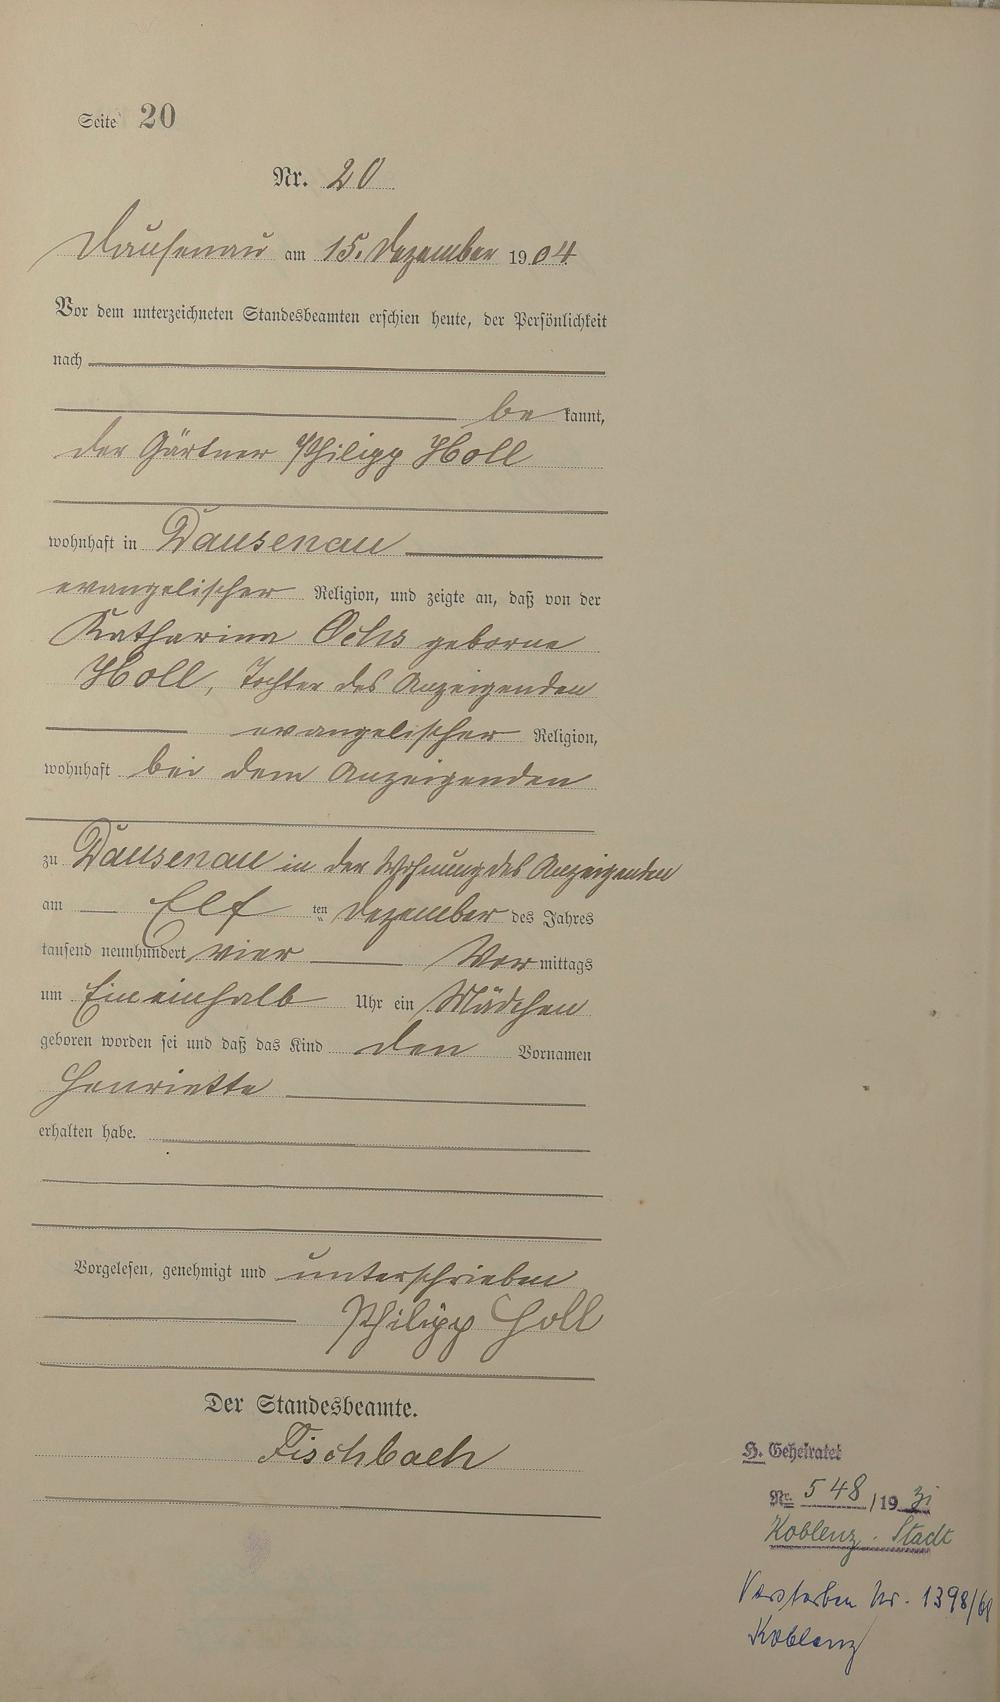 Seite 20
Nr. 20
Dausenau am 15. Dezember 1904
Vor dem unterzeichneten Standesbeamten erschien heute, der Persönlichkeit
nach
be kannt,
der Gärtner Philipp Holl
wohnhaft in Dausenau
evangelischer Religion, und zeigte an, daß von der
Katharina Ochs geborne
Holl, Tochter des Anzeigenden
evangelischer Religion,
wohnhaft bei dem Anzeigenden
zu Dausenau in der Wohnung des Anzeigenden
am Elf ten Dezember des Jahres
tausend neunhundert vier Vor mittags
um Ein einhalb Uhr ein Mädchen
geboren worden sei und daß das Kind den Vornamen
Henriette
erhalten habe.
Vorgelesen, genehmigt und unterschrieben
Philipp Holl
Der Standesbeamte.
Fischbach
H. Geheiratet
Nr. 548/1931
Koblenz-Stadt
Verstorben Nr. 1398/68
Koblenz